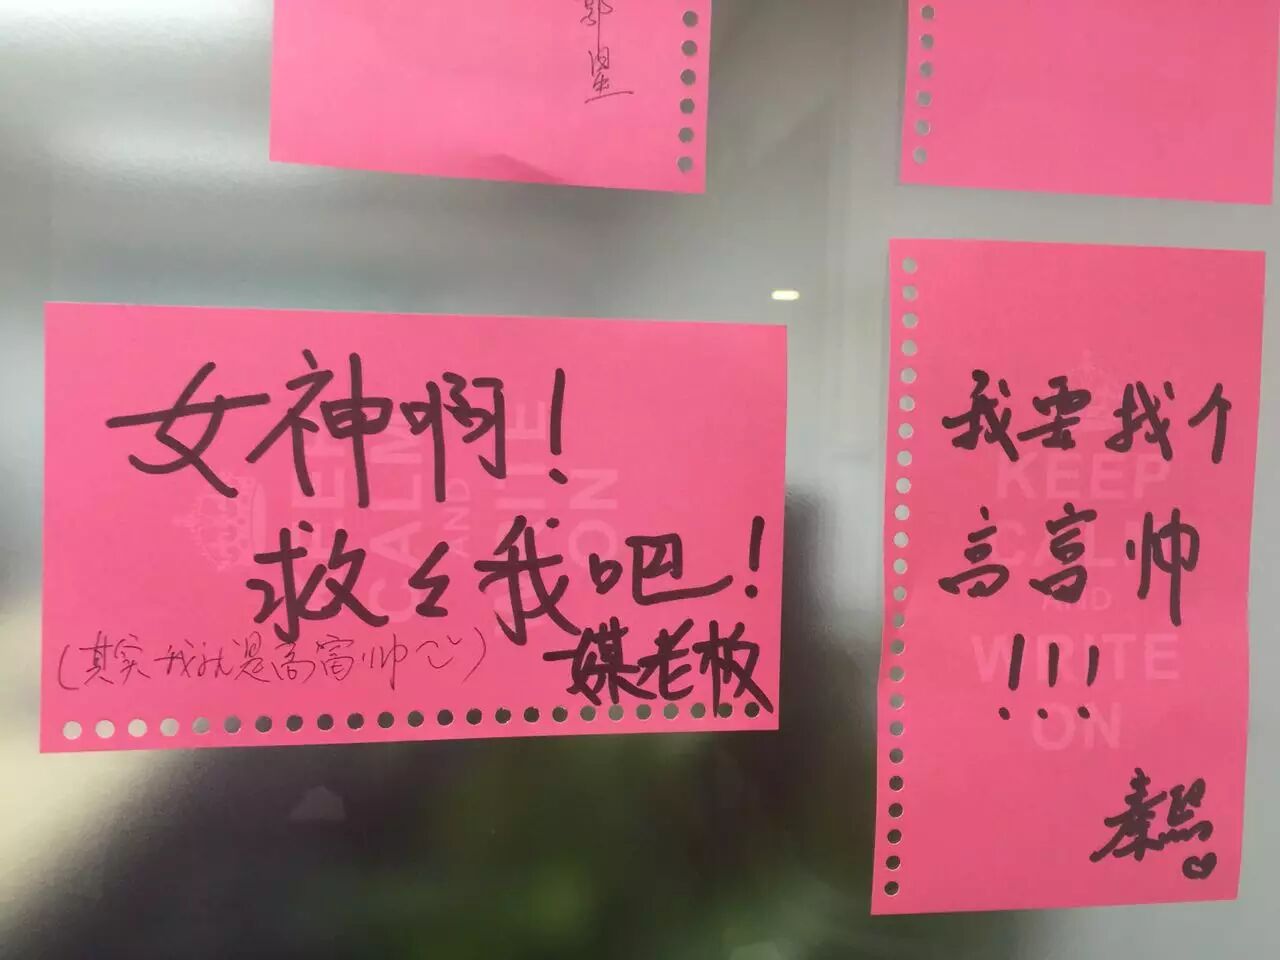 女神啊!
救々我吧!
(其实我就是高富帅~)
媒老板
我要找个
高富帅
!!!
秦熙
KEEP
CALM
AND
WRITE
ON
KEEP
CALM
AND
WRITE
ON